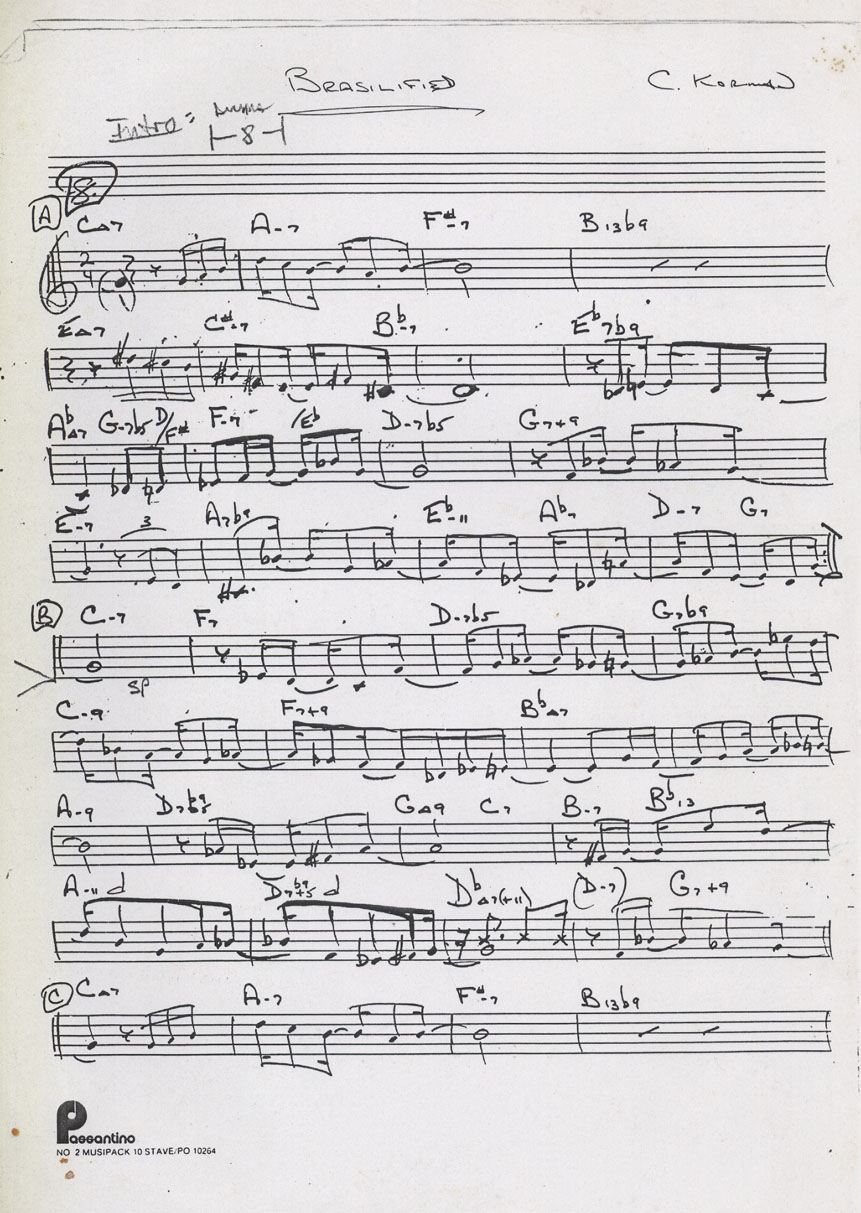 BRASILIFIED C. KORMAN
Intro: Drums
8
A
C△7 A-7 F#-7 B13b9
2
4
E△7 C#-7 Bb-7 Eb7b9
Ab△7 G-7b5 D/F# F-7 /Eb D-7b5 G7+9
E-7 3 A7b9 Eb-11 Ab-7 D-7 G7
B C-7 F7 D-7b5 G7b9
SP
C-9 F7+9 Bb△7
A-9 G△9 C7 B-7 Bb13
A-11 Db△7(+11) (D-7) G7+9
C C△7 A-7 F#-7 B13b9
Passantino
NO 2 MUSIPACK 10 STAVE/PO 10264